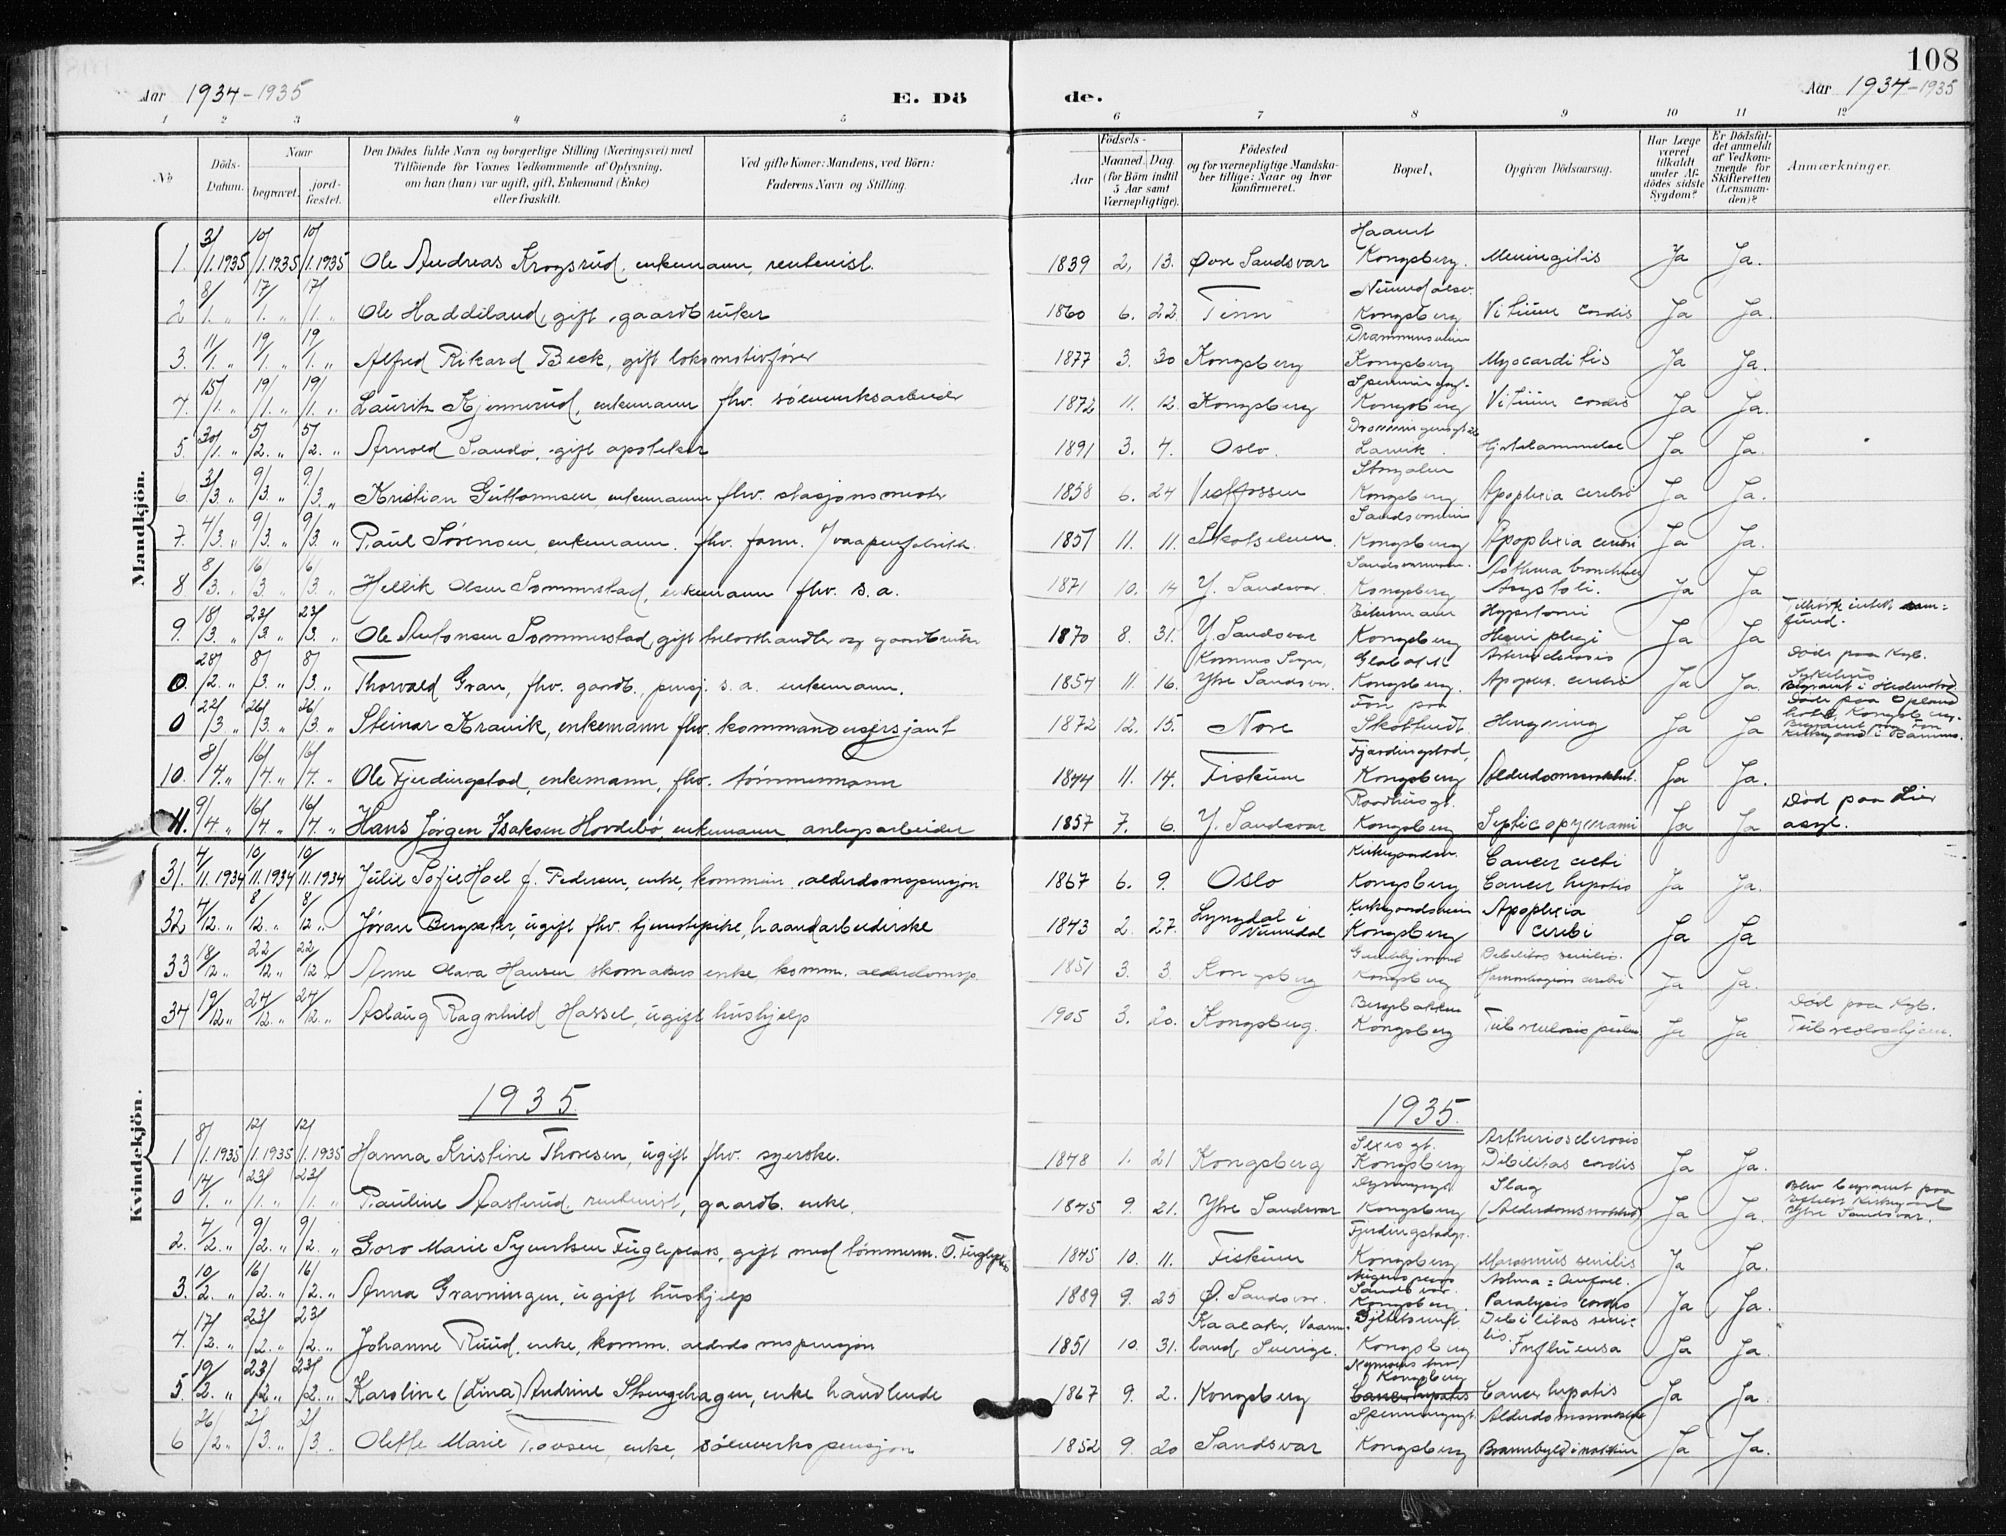 108
Aar 1934-1935
E. Dö
de.
Aar 1934-1935
1 2 3 4 5 6 7 8 9 10 11 12
No
Döds-Datum.
Naar
begravet.
jord-fæstet.
Den Dödes fulde Navn og borgerlige Stilling (Næringsvei) med
Tilföiende for Voxnes Vedkommende af Oplysning,
om han (hun) var ugift, gift, Enkemand (Enke)
eller fraskilt.
Ved gifte Koner: Mandens, ved Börn:
Faderens Navn og Stilling.
Födsels-
Aar
Maaned. Dag.
(for Börn indtil
5 Aar samt
Værnepligtige).
Födested
og for værnepligtige Mandska-
ber tillige: Naar og hvor
konfirmeret.
Bopæl.
Opgiven Dödsaarsag.
Har Læge
været
tilkaldt
under Af-
dödes sidste
Sygdom?
Er Dödsfal-
det anmeldt
af Vedkom-
mende for
Skifteretten
(Lensman-
den)?
Anmærkninger.
Mandkjön.
1. 3/1. 1935 10/1. 1935 10/1. 1935 Ole Andreas Krogsrud, enkemann, rentenist. 1839 2. 13. Øvre Sandsvar Kongsberg. Meningitis Ja Ja.
2 8/1. " 17/1. " 17/1. " Ole Haddeland, gift, gaardbruker 1860 6. 22. Tinn Kongsberg Vitium cordis Ja Ja.
3. 11/1. " 19/1. " 19/1. " Alfred Rikard Beck, gift lokomotivfører 1877 3. 30 Kongsberg Kongsberg Myocarditis Ja Ja.
4. 15/1. " 19/1. " 19/1. " Lauritz Kjennerud, enkemann fhv. sølvverksarbeider 1872 11. 12. Kongsberg Kongsberg Vitium cordis Ja Ja.
5. 30/1. " 5/2. " 5/2. " Arnold Sandø, gift apoteker 1891 3. 4. Oslo. Larvik. Hjertelammelse Ja Ja.
6. 3/3. " 9/3. " 9/3. " Kristian Guttormsen, enkemann fhv. stasjonsmester 1858 6. 24 Vestfossen Storgaten Kongsberg Apoplexia cerebri Ja Ja.
7. 4/3. " 9/3. " 9/3. " Paul Sørensen, enkemann. fhv. form. v/vaapenfabrikk. 1851 11. 11. Skotselven Kongsberg Apoplexia cerebri Ja Ja.
8 8/3. " 16/3 " 16/3. " Hellik Olsen Sommerstad, enkemann fhv. s.a. 1871 10. 14 Y. Sandsvar. Kongsberg Asthma bronchiale Asystoli. Ja Ja
9. 18/3. " 23/3 " 23/3. " Ole Antonsen Sommerstad gift gaardbruker 1870 8. 31. Y. Sandsvar Kongsberg Hemiplegi Ja Ja
0. 28/2. " 8/3. " 8/3. " Thorvald Gran, fhv. gaardb., pensj. s.a. enkemann. 1854 11. 16. Ytre Sandsvar. Kongsberg. Apoplex. cerebri Ja Ja. Døde paa Kgb. Sykehus Begravet i Hedenstad
0 22/3 " 26/3 " 26/3 " Steinar Kravik, enkemann fhv. kommandersersjant 1872 12. 15. Nore Hengning Ja Ja
10. 8/4. " 16/4. " 16/4. " Ole Fjerdingstad, enkemann, fhv. tømmermann 1844 11. 14. Fiskum Fjerdingstad, Kongsberg Ja Ja.
11. 9/4. " 16/4. " 16/4. " Hans Jørgen Isaksen Hovdebø, enkemann anlegsarbeider 1857 7. 6. Y. Sandsvar Raadhusgt. Kongsberg Septicopyemi Ja Ja Død paa Lier asyl.
Kvindekjön.
31. 4/11. 1934 10/11. 1934 10/11. 1934 Julie Sofie Hoel f. Pedersen, enke, kommun. alderdomspensjon 1867 6. 9. Oslo Kongsberg Cancer hepatis Ja Ja.
32 4/12. " 8/12. " 8/12 " Jøran Bergseter, ugift fhv. tjenestepike, haandarbeiderske 1843 2. 27. Lyngdal i Numedal Kongsberg Apoplexia cerebri Ja Ja
33 18/12. " 22/12 " 22/12 " Anne Olava Hansen skomakers enke komm. alderdomsp. 1851 3. 3. Kongsberg Kongsberg Debilitas senilis. Ja Ja.
34 19/12 " 24/12. " 24/12. " Aslaug Ragnhild Hassel, ugift hushjelp 1905 3. 20. Kongsberg. Bergbakken Kongsberg Ja Ja Død paa Kgb. Tuberculosehjem.
1935.
1935.
1 8/1. 1935 12/1. 1935 12/1. 1935 Hanna Kristine Thoresen, ugift fhv. syerske. 1848 1. 21 Kongsberg Kongsberg Artheriosclerosis Debilitas cordis Ja Ja.
0 14/1. " 23/1. " 23/1. " Pauline Aasterud rentenist, gaardb. enke. 1845 9. 21. Ytre Sandsvar Kongsberg Slag Ja Ja. Blev begravet paa Kirkegaard Ytre Sandsvar.
2. 4/2. " 9/2. " 9/2. " Goro Marie Syvertsen Fuglepeas, gift med tømmerm. O. 1845 10. 11. Fiskum Kongsberg Marasmus senilis Ja Ja.
3. 10/2. " 16/2. " 16/2. " Anna Gravningen, ugift hushjelp 1889 9. 25 Ø. Sandsvar. Kongsberg. Paralysis cordis Ja Ja.
4. 17/2. " 23/2. " 23/2. " Johanne Ruud, enke, komm. alderdomspensjon 1851 10. 31. land, Sverige. Kongsberg Debilitas senilis. Influensa Ja Ja.
5 19/2. " 23/2. " 23/2. " Karoline (Lina) Andrine Stengehagen, enke handlende 1867 9. 2. Kongsberg Kongsberg Cancer hepatis Cancer hepatis Ja Ja.
6 26/2. " 2/3. " 2/3. " Oleffe Marie enke, sølvverks pensjon 1852 9. 20 Sandsvar Kongsberg Ja Ja.